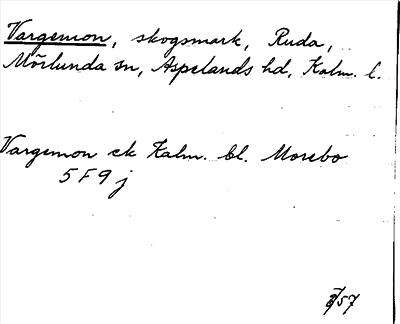 Vargemon, skogsmark, Ruda,
Mörlunda sn, Aspelands hd, Kalm. l.
Vargemon ek Kalm. bl. Morebo
5F9j
57